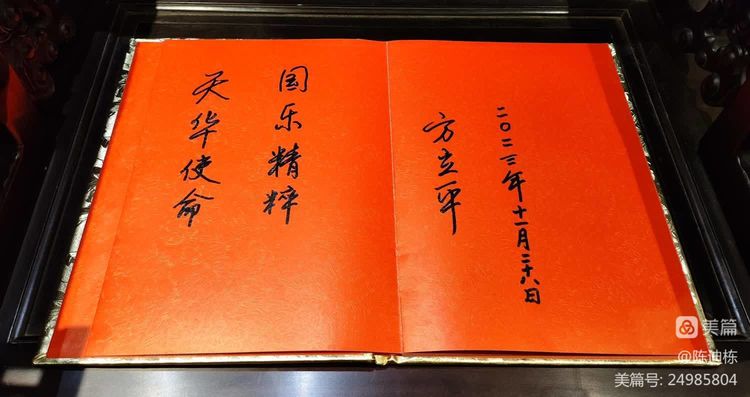 国乐精粹
天华使命
方立平
二〇二三年十一月二十八日
美篇
@陈迪栋
美篇号: 24985804